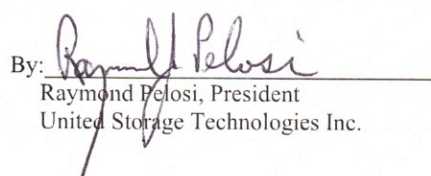 By: Raymond Pelosi
Raymond Pelosi, President
United Storage Technologies Inc.